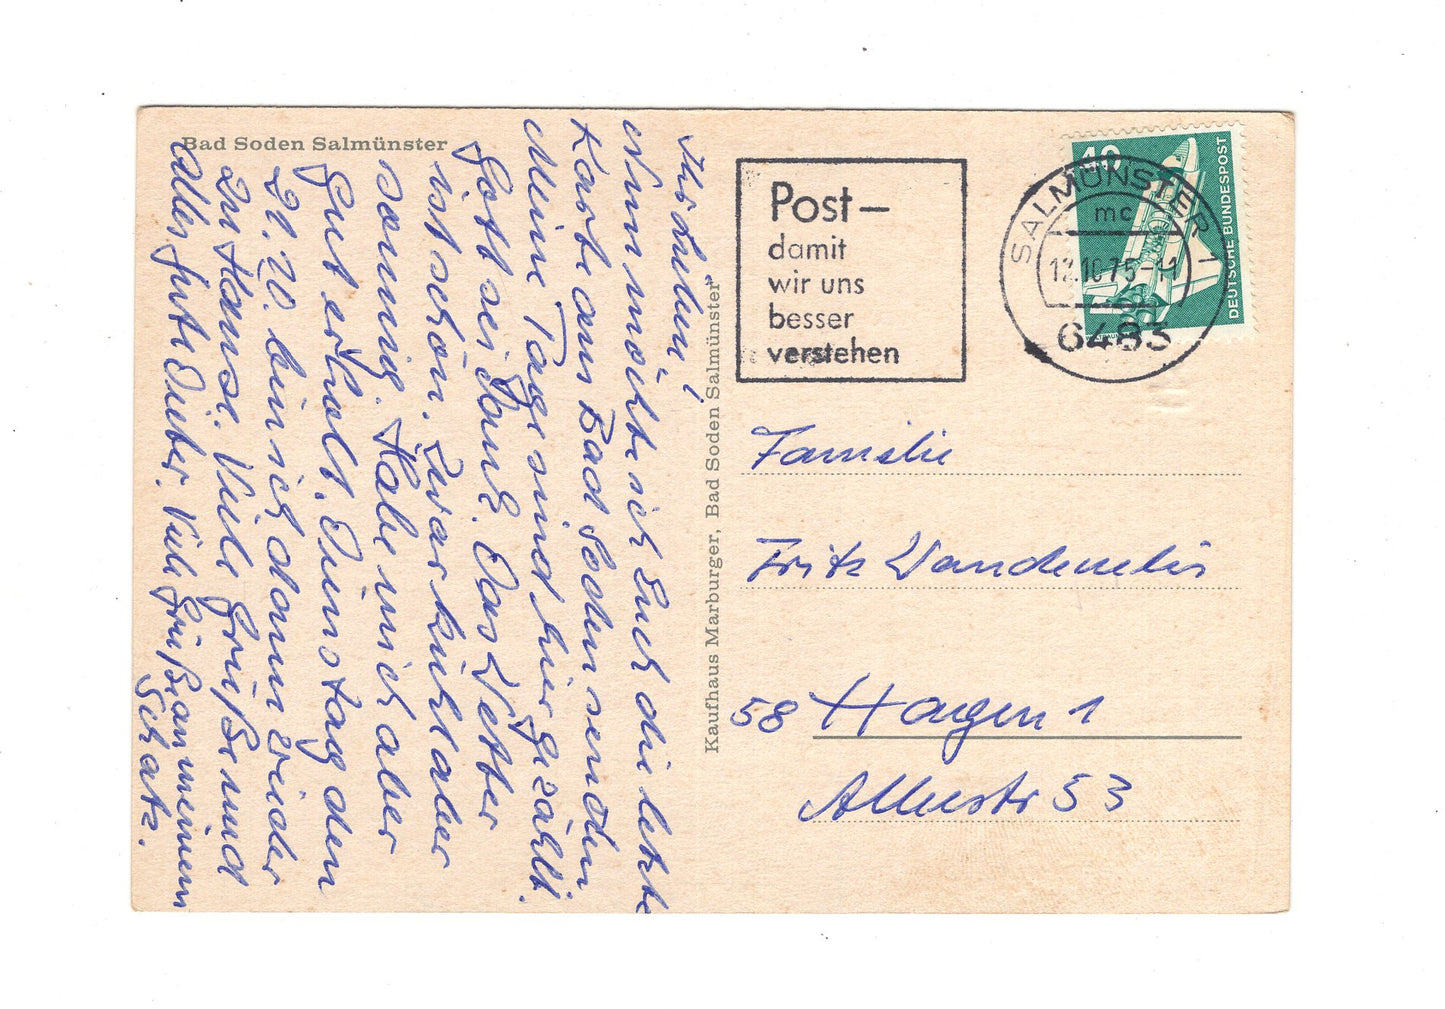 Bad Soden Salmünster
Ihr Lieben!
Nun möchte ich Euch die letzte
Karte aus Bad Soden senden
Meine Tage sind hier gezählt.
Gott sei Dank. Das Wetter
ist schön. Zwar kühl aber
sonnig. Habe mich aber
Gut erholt. Dienstag dem
21.10. bin ich dann wieder
Zu Hause. Viele Grüße und
Alles Gute Dieter. Viele Grüße an meinem
Schatz.
Kaufhaus Marburger, Bad Soden Salmünster
Post –
damit
wir uns
besser
verstehen
SALMÜNSTER 1
mc
17.10.75-11
6483
40
DEUTSCHE BUNDESPOST
Familie
Fritz
58 Hagen 1
Alleestr 53